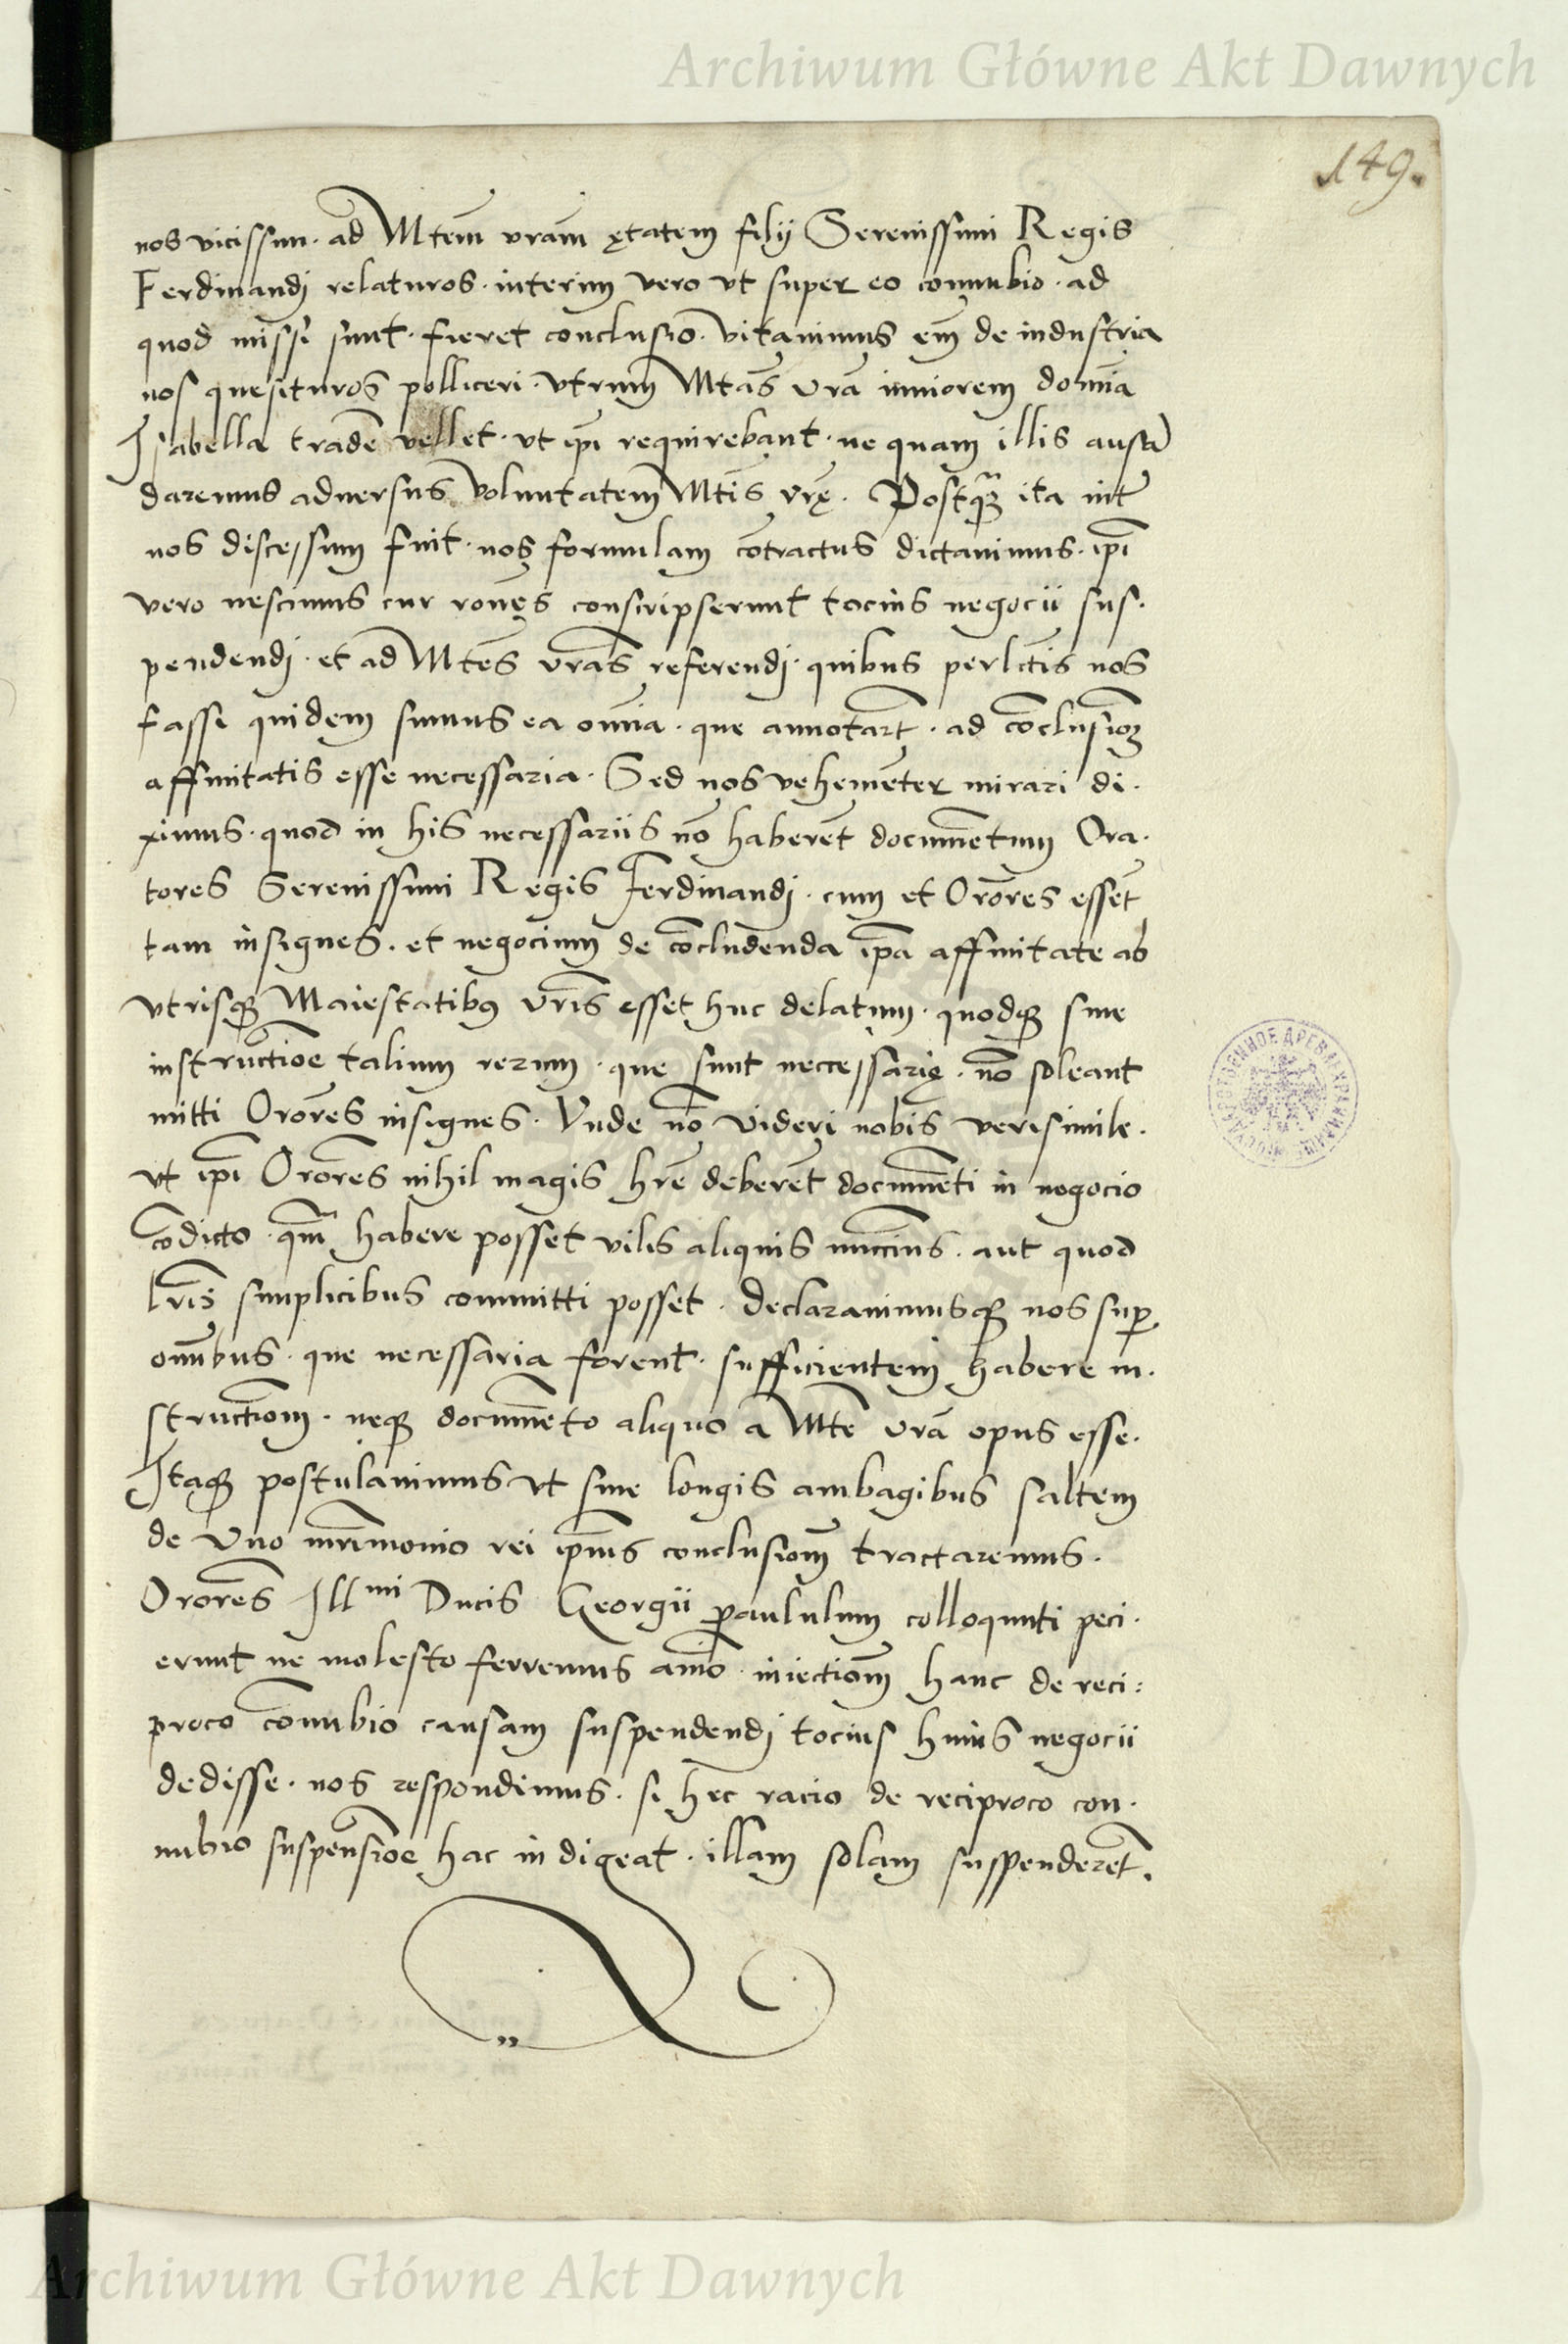 Archiwum Główne Akt Dawnych
149.
nos vicissim · ad Mtem vram ętatem filij Serenissimi Regis
Ferdinandj relaturos · interim vero vt super eo connubio · ad
quod missi sunt · fieret conclusio · vitauimus em de industria
nos quesituros polliceri · vtrum Mtas vra iuniorem domina
Isabella trade vellet · vt ipi requirebant · ne quam illis ansa
daremus aduersus voluntatem Mtis vrę · Postq̃ ita inter
nos discessum fuit · nos formulam cõtractus dictauimus · ipi
vero nescimus cur rones conscripserunt tocius negocii sus·
pendendj · et ad Mtes vras referendj · quibus perlctis nos
fassi quidem sumus ea omnia · que annotarũt · ad cõclusionẽ
affinitatis esse necessaria · Sed nos vehemẽter mirari di·
ximus · quod in his necessariis nõ haberẽt documentum Ora·
tores Serenissimi Regis Ferdinandj · cum et Orores essẽt
tam insignes · et negocium de cõcludenda ipa affinitate ab
vtrisq Maiestatibus vris esset huc delatum · quodq sine
instructioe talium rerum · que sunt neccessarię · nõ soleant
mitti Orores insignes · Vnde nõ videri nobis verisimile ·
vt ipi Orores nihil magis hre deberẽt documẽti in negocio
cõdicto · qm habere posset vilis aliquis nunctius · aut quod
lris simplicibus committi posset · declarauimusq nos sup
omibus · que necessaria forent · sufficientem habere in·
structionem · neq documẽto aliquo a Mte vra opus esse ·
Itaq postulauimus vt sine longis ambagibus saltem
de vno mrimonio rei ipius conclusionem tractaremus ·
Orores Illmi Ducis Georgii paululum colloquuti peci·
erunt ne molesto ferremus aio · iniectionem hanc de reci:
proco cõnubio causam suspendendj tocius huius negocii
dedisse · nos respondimus · si hec racio de reciproco con·
nubio suspensioe hac indigeat · illam solam suspenderẽt ·
Archiwum Główne Akt Dawnych